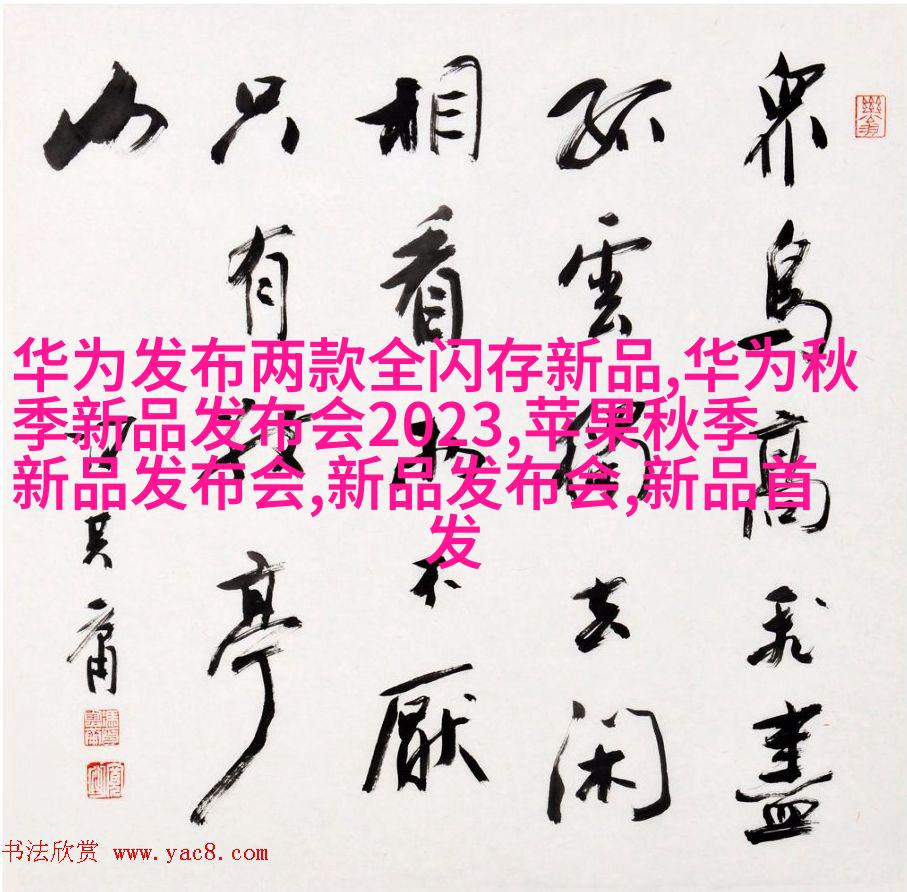 眾鳥高飛盡
孤雲獨去閑
相看兩不厭
只有敬亭
山
华为发布两款全闪存新品,华为秋
季新品发布会2023,苹果秋季
新品发布会,新品发布会,新品首
发
书法欣赏 www.yac8.com